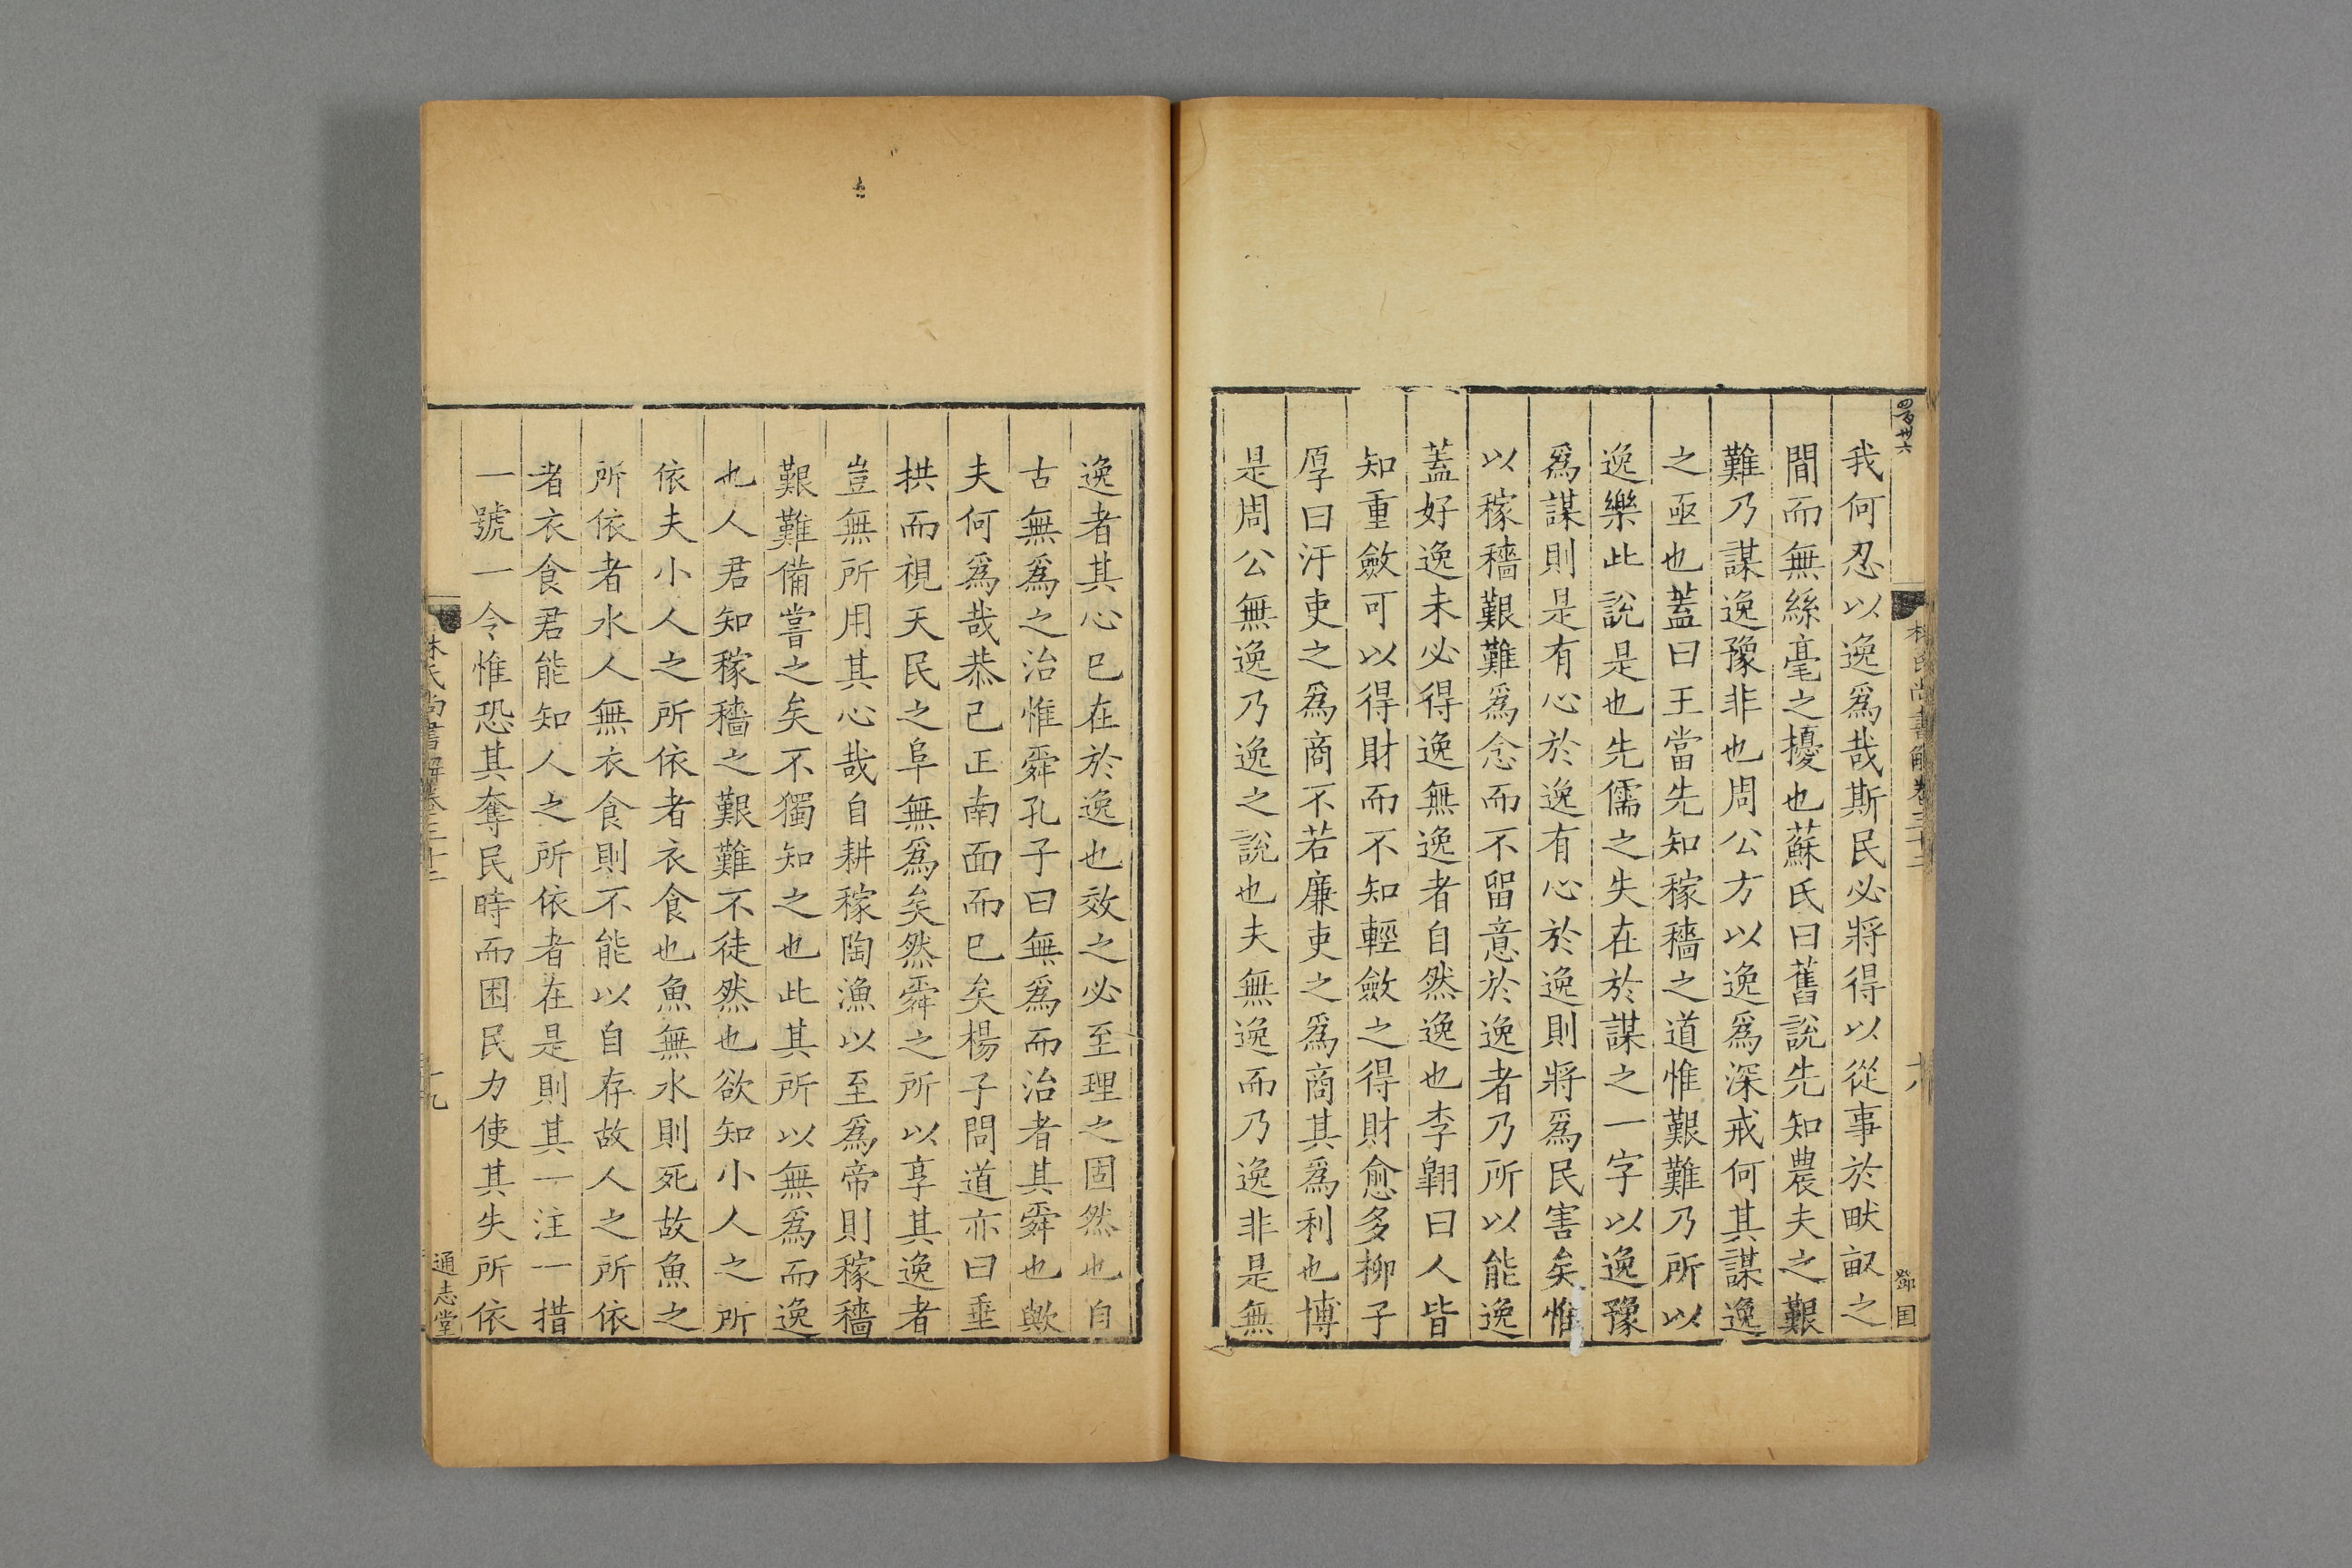 四百卅六
我何忍以逸爲哉斯民必將得以從事於畎畝之
間而無絲毫之擾也蘇氏曰舊說先知農夫之艱
難乃謀逸豫非也周公方以逸爲深戒何其謀逸
之亟也蓋曰王當先知稼穡之道惟艱難乃所以
逸樂此說是也先儒之失在於謀之一字以逸豫
爲謀則是有心於逸有心於逸則將爲民害矣惟
以稼穡艱難爲念而不留意於逸者乃所以能逸
蓋好逸未必得逸無逸者自然逸也李翺曰人皆
知重斂可以得財而不知輕斂之得財愈多柳子
厚曰汙吏之爲商不若廉吏之爲商其爲利也博
是周公無逸乃逸之說也夫無逸而乃逸非是無
林氏尚書解卷三十二
十八
鄧国
逸者其心已在於逸也效之必至理之固然也自
古無爲之治惟舜孔子曰無爲而治者其舜也歟
夫何爲哉恭己正南面而已矣楊子問道亦曰垂
拱而視天民之阜無爲矣然舜之所以享其逸者
豈無所用其心哉自耕稼陶漁以至爲帝則稼穡
艱難備嘗之矣不獨知之也此其所以無爲而逸
也人君知稼穡之艱難不徒然也欲知小人之所
依夫小人之所依者衣食也魚無水則死故魚之
所依者水人無衣食則不能以自存故人之所依
者衣食君能知人之所依者在是則其一注一措
一號一令惟恐其奪民時而困民力使其失所依
林氏尚書解卷三十二
十九
通志堂